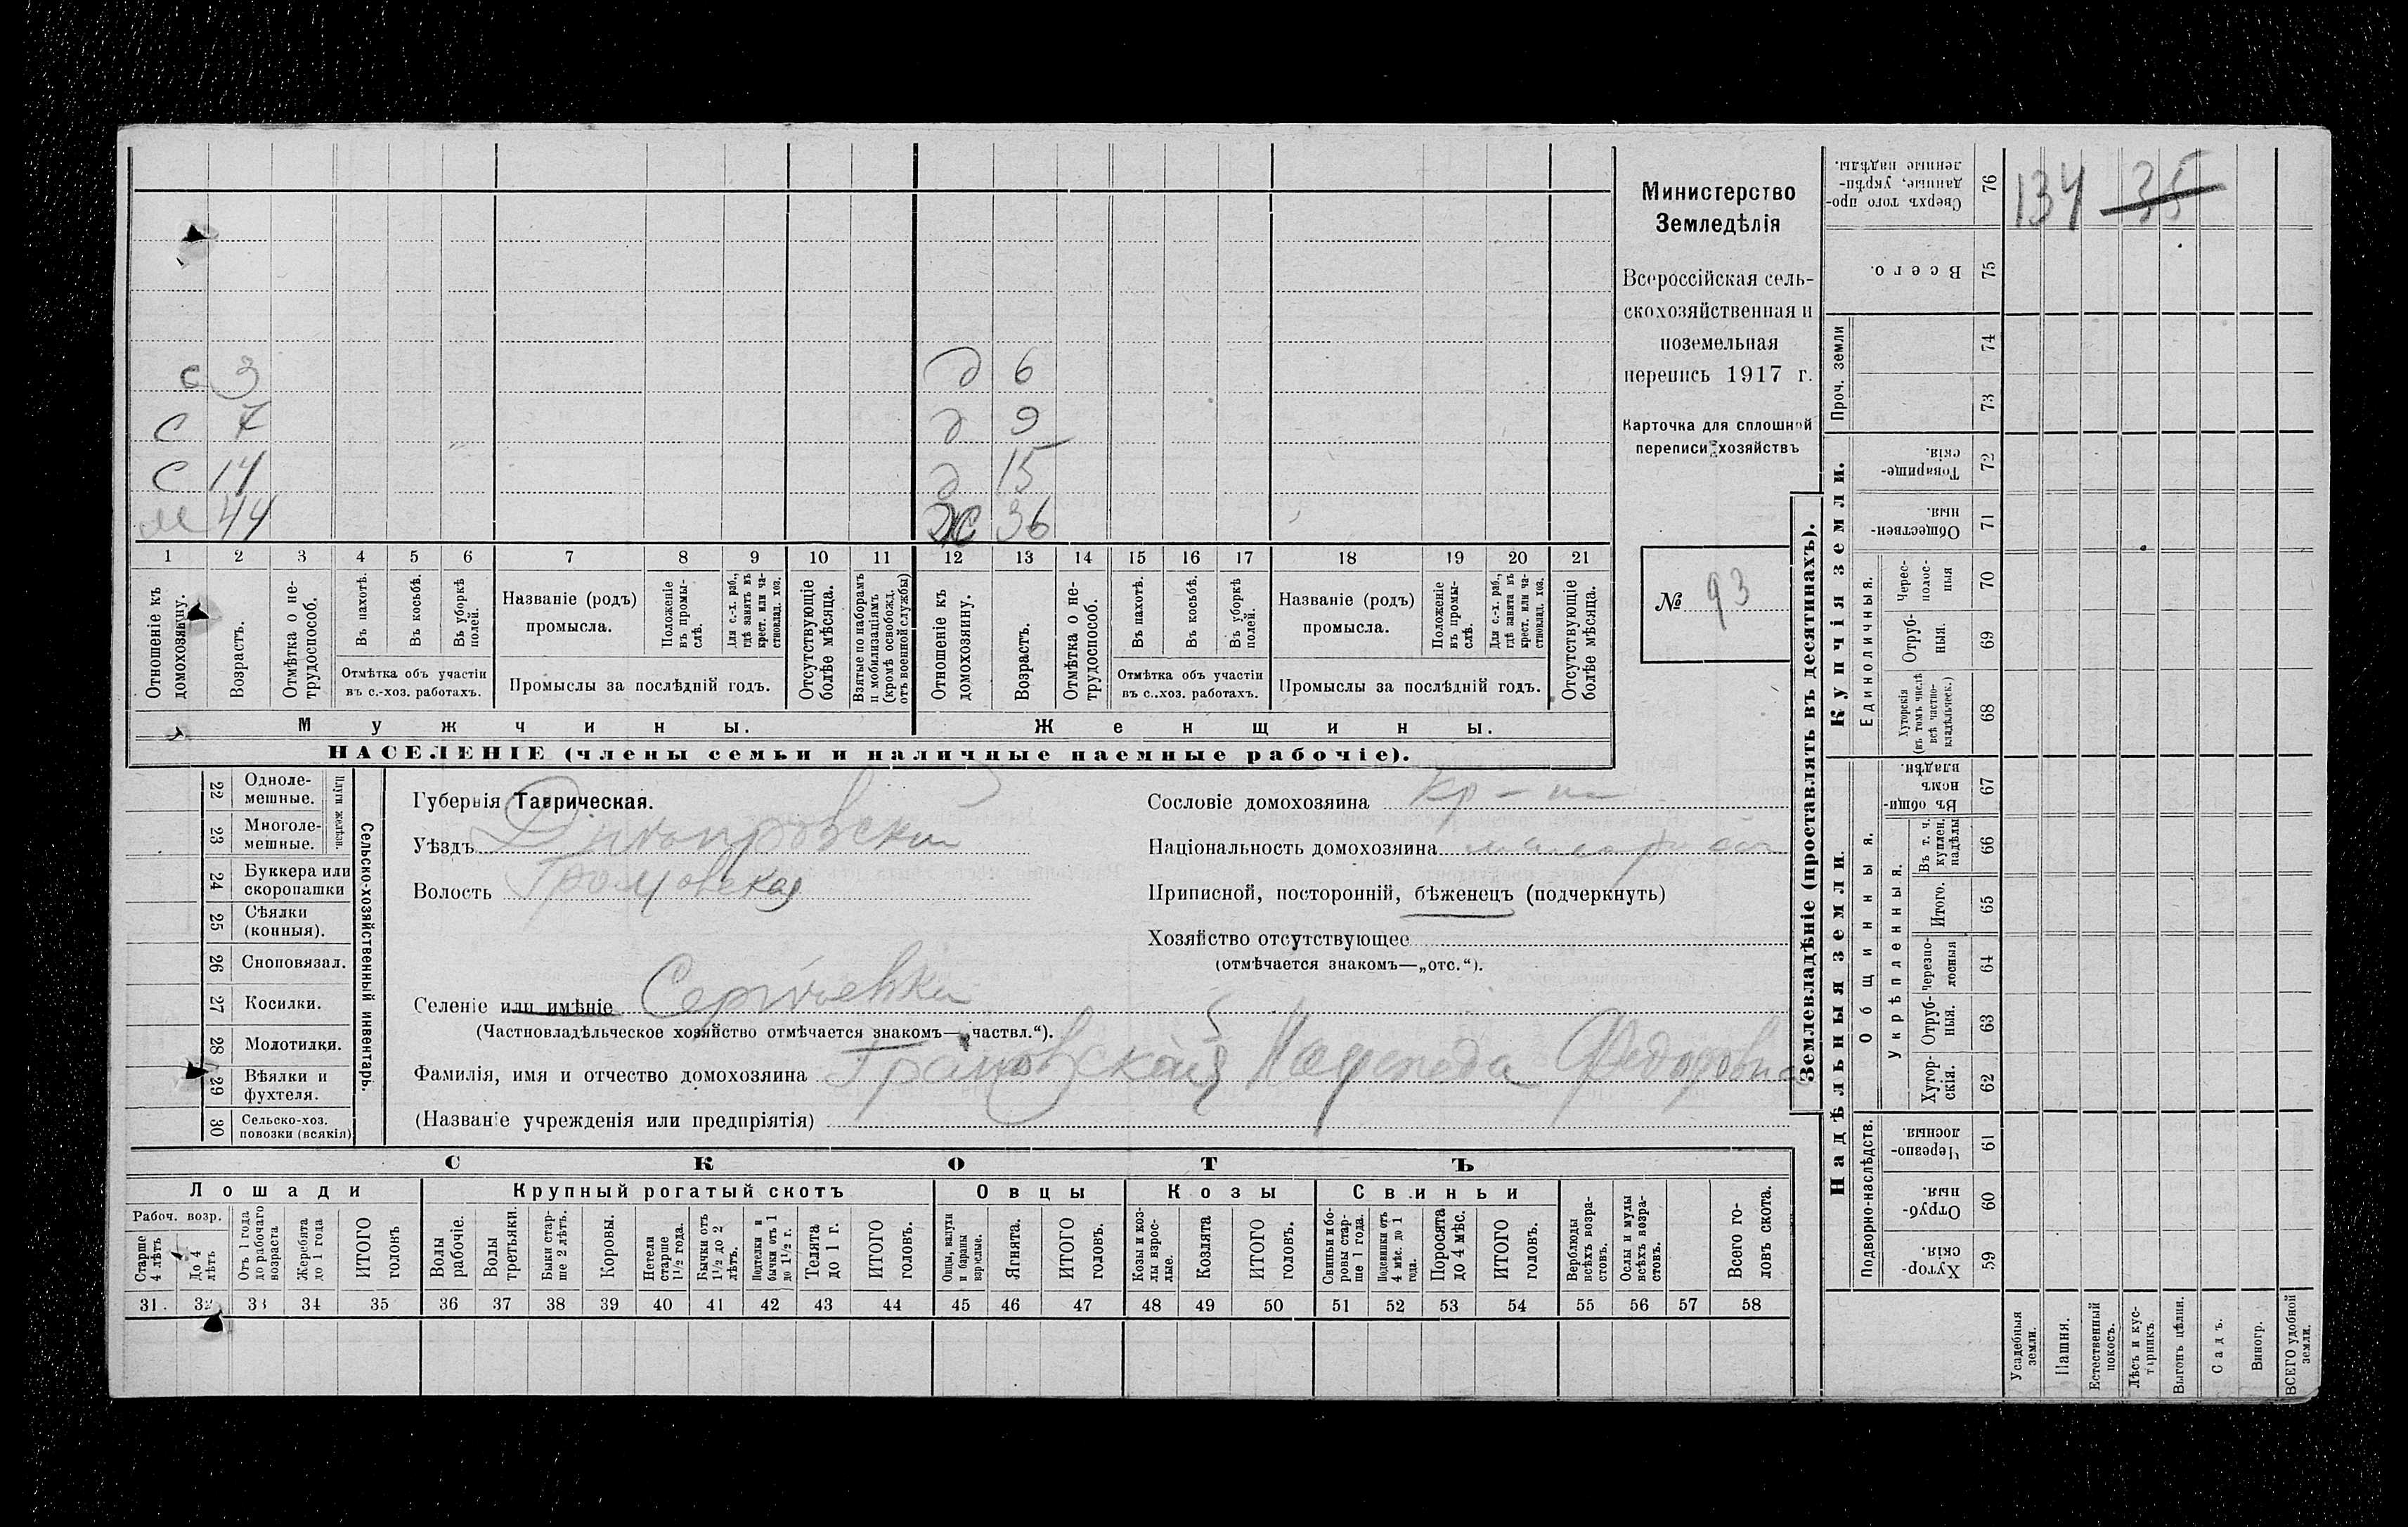 с 3 д 6
с 7 д 9
с 14 д 15
м 44 Ж 36
1 2 3 4 5 6 7 8 9 10 11 12 13 14 15 16 17 18 19 20 21
Отношеніе къ домохозяину.
Возрастъ.
Отмѣтка о не-
трудоспособ.
Въ пахотѣ.
Въ косьбѣ.
Въ уборкѣ
полей.
Отмѣтка объ участіи
въ с.-хоз. работахъ.
Названіе (родъ)
промысла.
Положеніе
въ промы-
слѣ.
Для с.-х. раб.,
гдѣ занятъ въ
крест. или ча-
стновлад. хоз.
Промыслы за послѣдній годъ.
Отсутствующіе
болѣе мѣсяца.
Взятые по наборамъ
и мобилизаціямъ
(кромѣ освобожд.
отъ военной службы)
Отношеніе къ
домохозяину.
Возрастъ.
Отмѣтка о не-
трудоспособ.
Въ пахотѣ.
Въ косьбѣ.
Въ уборкѣ
полей.
Отмѣтка объ участіи
въ с..хоз. работахъ.
Названіе (родъ)
промысла.
Положеніе
въ промы-
слѣ.
Для с.-х. раб.,
гдѣ занята въ
крест. или ча-
стновлад. хоз.
Промыслы за послѣдній годъ.
Отсутствующіе
болѣе мѣсяца.
Мужчины. Женщины.
НАСЕЛЕНІЕ (члены семьи и наличные наемные рабочіе).
Министерство
Земледѣлія
Всероссійская сель-
скохозяйственная и
поземельная
перепись 1917 г.
Карточка для сплошной
переписи хозяйствъ
№ 93
22 Одноле-
мешные.
23 Многоле-
мешные.
Плуги желѣзн.
24 Буккера или
скоропашки
25 Сѣялки
(конныя).
26 Сноповязал.
27 Косилки.
28 Молотилки.
29 Вѣялки и
фухтеля.
30 Сельско-хоз.
повозки (всякія)
Сельско-хозяйственный инвентарь.
Губернія Таврическая.
Уѣздъ Днѣпровскій
Волость Громовская
Селеніе или имѣніе Сергѣевка
(Частновладѣльческое хозяйство отмѣчается знакомъ—„частвл.“).
Фамилія, имя и отчество домохозяина Грановская Надежда Федоровна
(Названіе учрежденія или предпріятія)
Сословіе домохозяина кр-на
Національность домохозяина
Приписной, посторонній, бѣженецъ (подчеркнуть)
Хозяйство отсутствующее
(отмѣчается знакомъ—„отс.“).
СКОТЪ
Лошади
Рабоч. возр.
Старше
4 лѣтъ
До 4
лѣтъ
Отъ 1 года
до рабочаго
возраста
Жеребята
до 1 года
ИТОГО
головъ
Крупный рогатый скотъ
Волы
рабочіе.
Волы
третьяки.
Быки стар-
ше 2 лѣтъ.
Коровы.
Нетели
старше
1½ года.
Бычки отъ
1½ до 2
лѣтъ.
Подтелки и
бычки отъ 1
до 1½ г.
Телята
до 1 г.
ИТОГО
головъ.
Овцы
Овцы, валухи
и бараны
взрослые.
Ягнята.
ИТОГО
головъ.
Козы
Козы и коз-
лы взрос-
лые.
Козлята
ИТОГО
головъ.
Свиньи
Свиньи и бо-
ровы стар-
ше 1 года.
Подсвинки отъ
4 мѣс. до 1
года.
Поросята
до 4 мѣс.
ИТОГО
головъ.
Верблюды
всѣхъ возра-
стовъ.
Ослы и мулы
всѣхъ возра-
стовъ.
Всего го-
ловъ скота.
31. 32 33 34 35 36 37 38 39 40 41 42 43 44 45 46 47 48 49 50 51 52 53 54 55 56 57 58
Землевладѣніе (проставлять въ десятинахъ).
Купчія земли.
Надѣльныя земли.
Сверхъ того про-
данные, укрѣп-
ленные надѣлы.
76
134 35
Всего.
75
Проч. земли
74
73
Товарище-
скія.
72
Обществен-
ныя.
71
Единоличныя.
Черес-
полос-
ныя
70
Отруб-
ныя.
69
Хуторскія
(въ томъ числѣ
всѣ частно-
владѣльческ.)
68
Общинныя.
Въ общи-
номъ
владѣн.
67
Укрѣпленныя.
Въ т. ч.
куплен.
надѣлы
66
Итого.
65
Черезпо-
лосныя
64
Отруб-
ныя.
63
Хутор-
скія.
62
Подворно-наслѣдств.
Черезпо-
лосныя.
61
Отруб-
ныя.
60
Хутор-
скія.
59
Усадебныя
земли.
Пашня.
Естественный
покосъ.
Лѣсъ и кус-
тарникъ
Выгонъ цѣлин.
Садъ.
Виногр.
ВСЕГО удобной
земли.